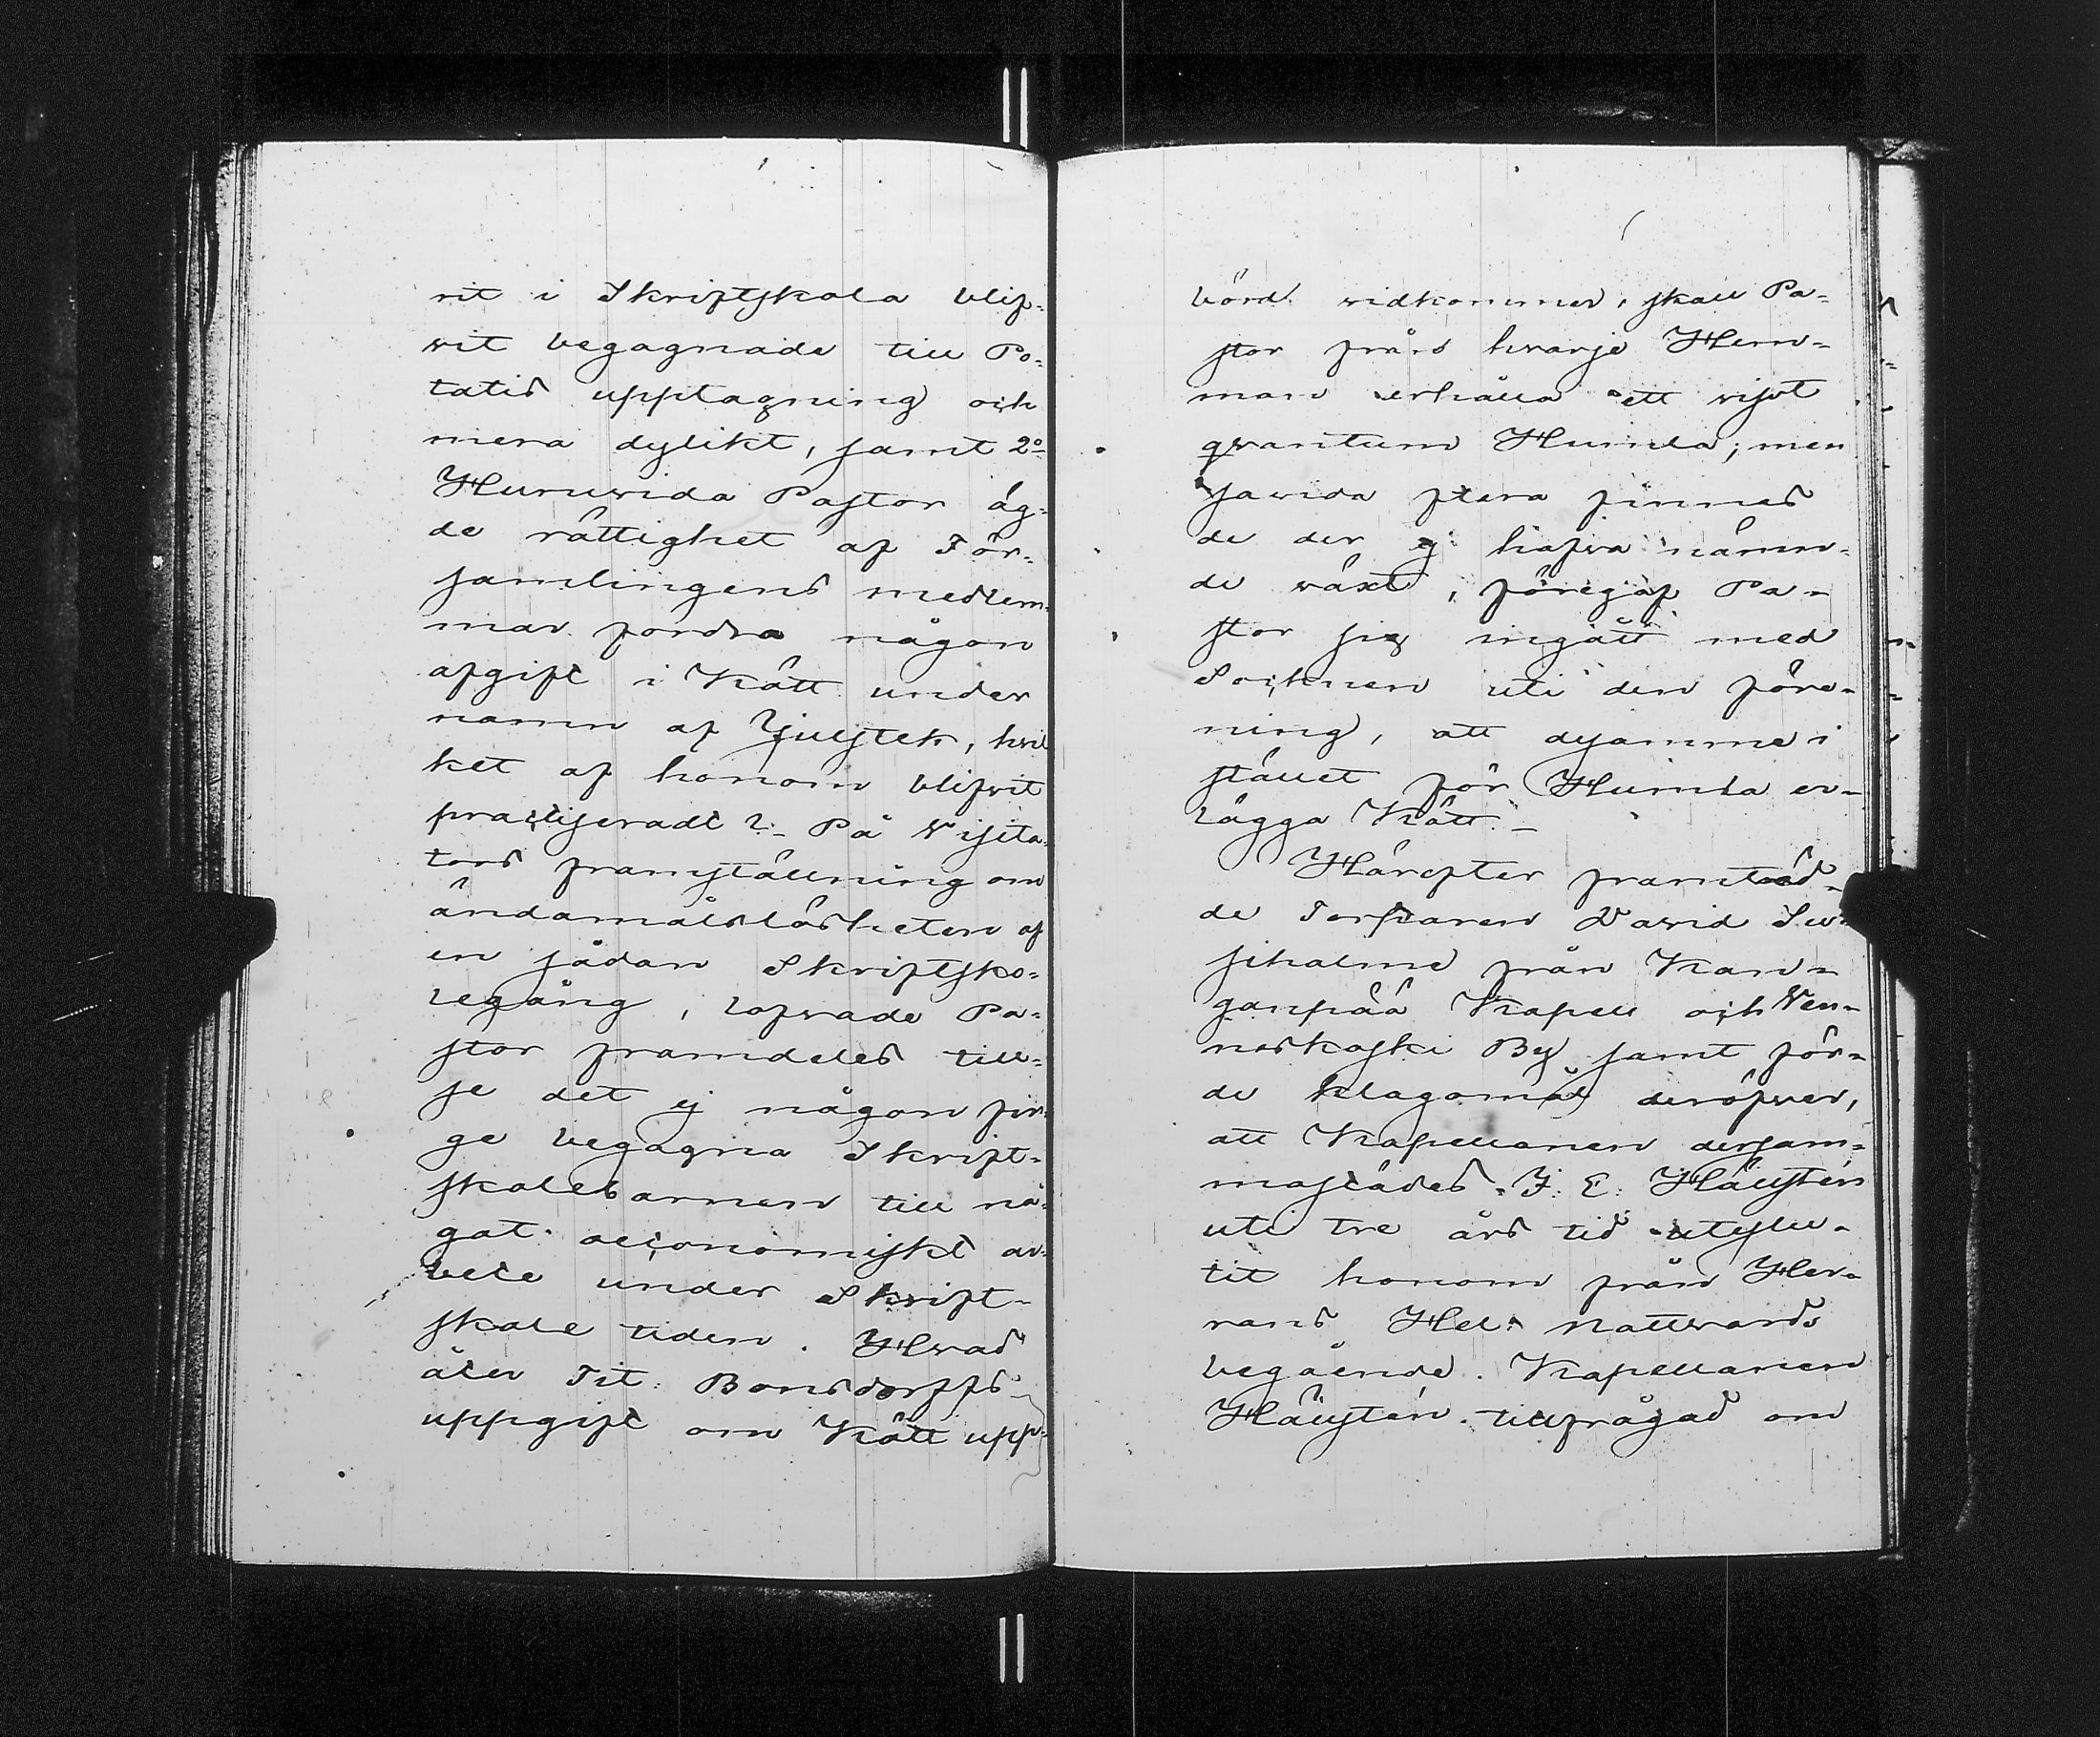 rit i Skriftskola blif-
vit begagnade till Po-
tatis upptagning och
mera dylikt, samt 2o
Huruvida Pastor äg-
de rättighet af För-
samlingens medlem-
mar fordra någon
afgift i Kött under
namn af Ljusstek, hvil
ket af honom blifvit
practiseradt? På Visita-
tors framställning om
ändamålslösheten af
en sådan Skriftsko-
legång, lofvade Pa-
stor framdeles till-
se det ej någon fin-
ge begagna Skrift-
skolebarnen till nå-
got oeconomiskt ar-
bete under Skrift-
skole tiden. Hvad
åter Tit: Bonsdorffs
uppgift om Kött upp-
börd vidkommer, skall Pa-
stor från hvarje Hem-
man erhålla ett visst
qvantum Humla; men
savida flera finnes
de der ej hafva nämn-
de växt, föregaf Pa-
stor sig ingått med
Socknen uti den före-
ning, att desamme i
stället för Humla er-
lägga Kött.
Härefter framträd-
de Torparen David Su-
siholme från Kan-
ganpää Kapell och Ven-
neskoski By samt för-
de klagomål deröfver,
att Kapellanen dersam-
mastädes J: E: Häggstén
uti tre års tid uteslu-
tit honom från Her-
rans Hel: Nattvards
begående. Kapellanen
tillfrågad om